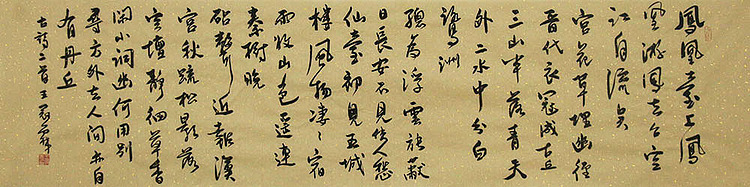 鳳凰臺上鳳
凰游鳳去台空
江自流吴
宮花草埋幽徑
晉代衣冠成古丘
三山半落青天
外二水中分白
鷺洲
總為浮雲能蔽
日長安不見使人愁
仙臺初見五城
樓風物凄々宿
雨收山色遥連
秦樹晚
砧聲近報漢
宮秋疏松影落
空壇靜細草香
閑小洞幽何用別
尋方外去人間亦自
有丹丘
古詩二首王